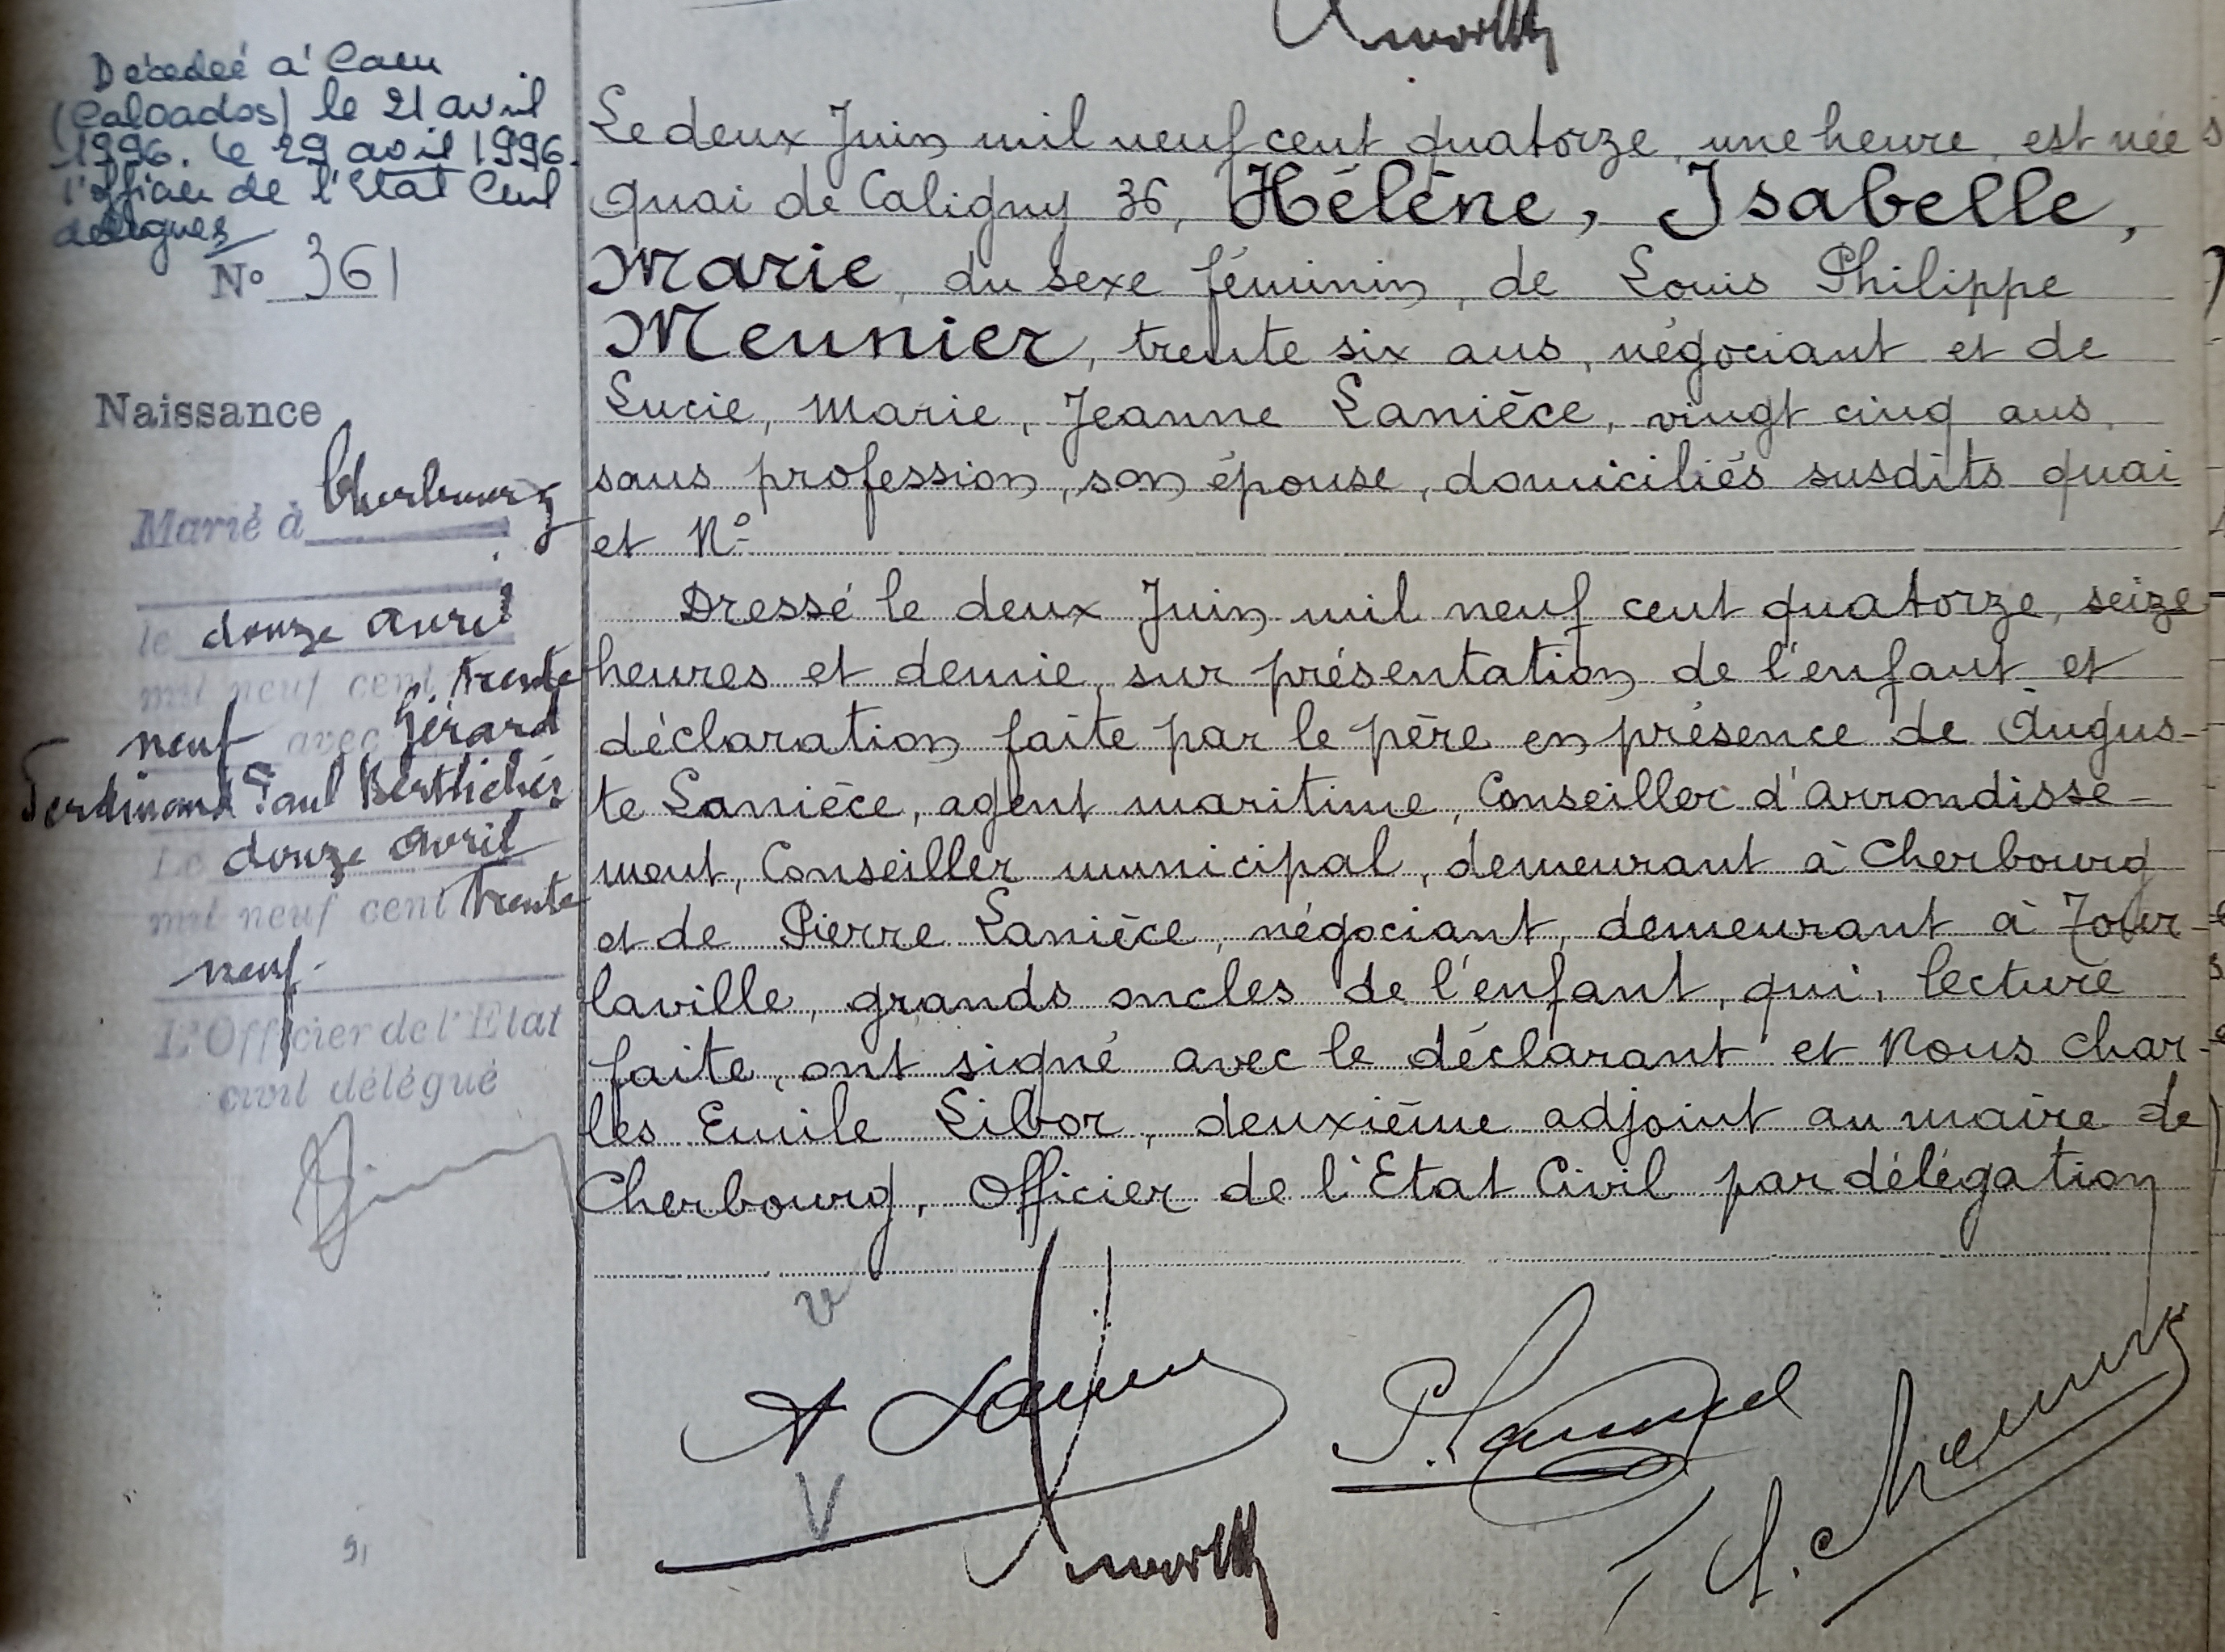 Décédée à Caen
(Calvados) le 21 avril
1996. Le 29 avril 1996.
l'officier de l'Etat Civil
délégué
N° 361
Naissance
Marié à Cherbourg
le douze avril
mil neuf cent trente
neuf avec Gérard
Ferdinand Paul
Le douze avril
mil neuf cent trente
neuf.
L'Officier de l'Etat
civil délégué
Le deux Juin mil neuf cent quatorze, une heure, est née
quai de Caligny 36, Hélène, Isabelle,
Marie, du sexe féminin, de Louis Philippe
Meunier, trente six ans, négociant et de
Lucie, Marie, Jeanne Lanièce, vingt cinq ans,
sans profession, son épouse, domiciliés susdits quai
et N°
Dressé le deux Juin mil neuf cent quatorze, seize
heures et demie, sur présentation de l'enfant et
déclaration faite par le père en présence de Augus-
te Lanièce, agent maritime, Conseiller d'arrondisse-
ment, Conseiller municipal, demeurant à Cherbourg
et de Pierre Lanièce, négociant, demeurant à Tour-
laville, grands oncles de l'enfant, qui, lecture
faite, ont signé avec le déclarant et Nous Char-
les Emile Libor, deuxième adjoint au maire de
Cherbourg, Officier de l'Etat Civil par délégation